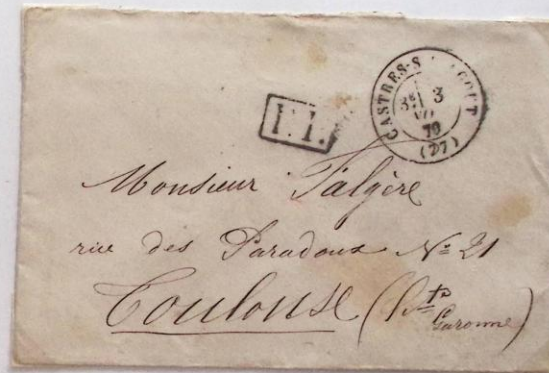 CASTRES-S
3E 3
70
(77)
P.P.
Monsieur Falgère
rue des Paradoux No 21
Toulouse (Hte
Garonne)